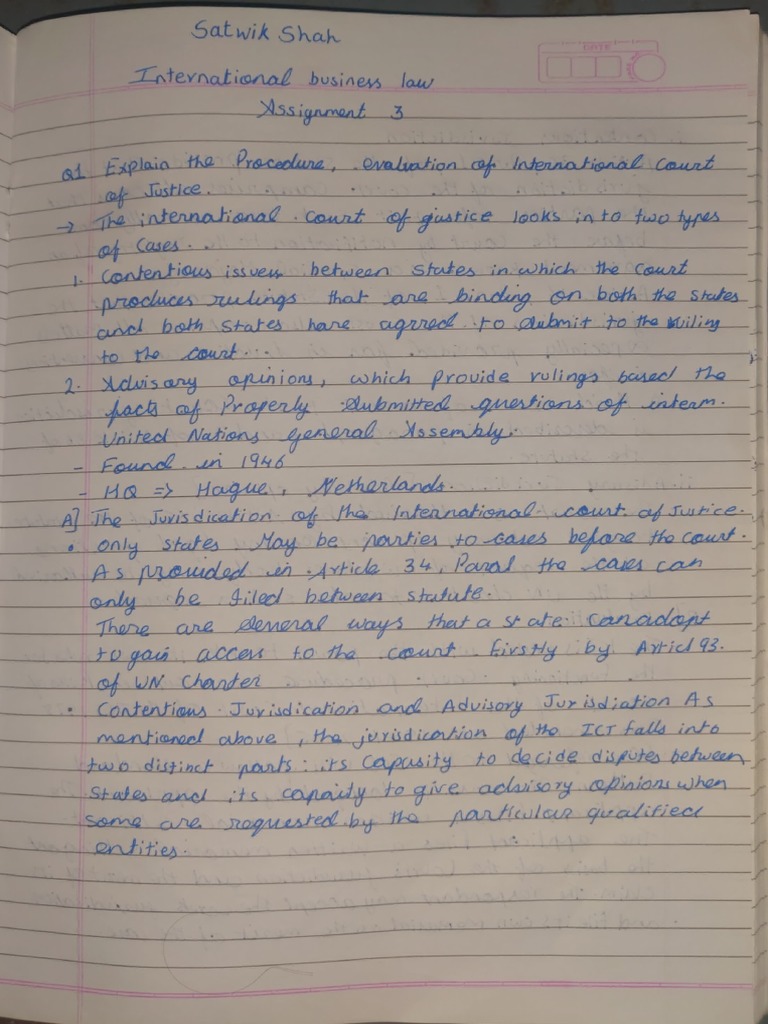 Satwik Shah
DATE
International business law
Assignment 3
Q1 Explain the Procedure, evaluation of International Court
of Justice.
→ The international court of justice looks in to two types
of Cases.
1. Contentious issues between States in which the court
produces rulings that are binding on both the states
and both States have agrred to submit to the
to the court.
2. Advisory opinions, which provide rulings based the
facts of Properly submitted questions of interm.
United Nations General Assembly.
- Found in 1946
- HQ => Hague, Netherlands.
A] The Jurisdication of the International court of Justice.
• only states May be parties to cases before the court.
As provided in Article 34, Para1 the cases can
only be filed between statute.
There are several ways that a state can adopt
to gain access to the court firstly by Articl 93.
of UN Charter
• Contentions Jurisdication and Advisory Jurisdiation As
mentioned above, the jurisdication of the ICT falls into
two distinct parts: its Capusity to decide disputes between
States and its capaity to give advisory opinions when
some are requested by the particular qualified
entities.